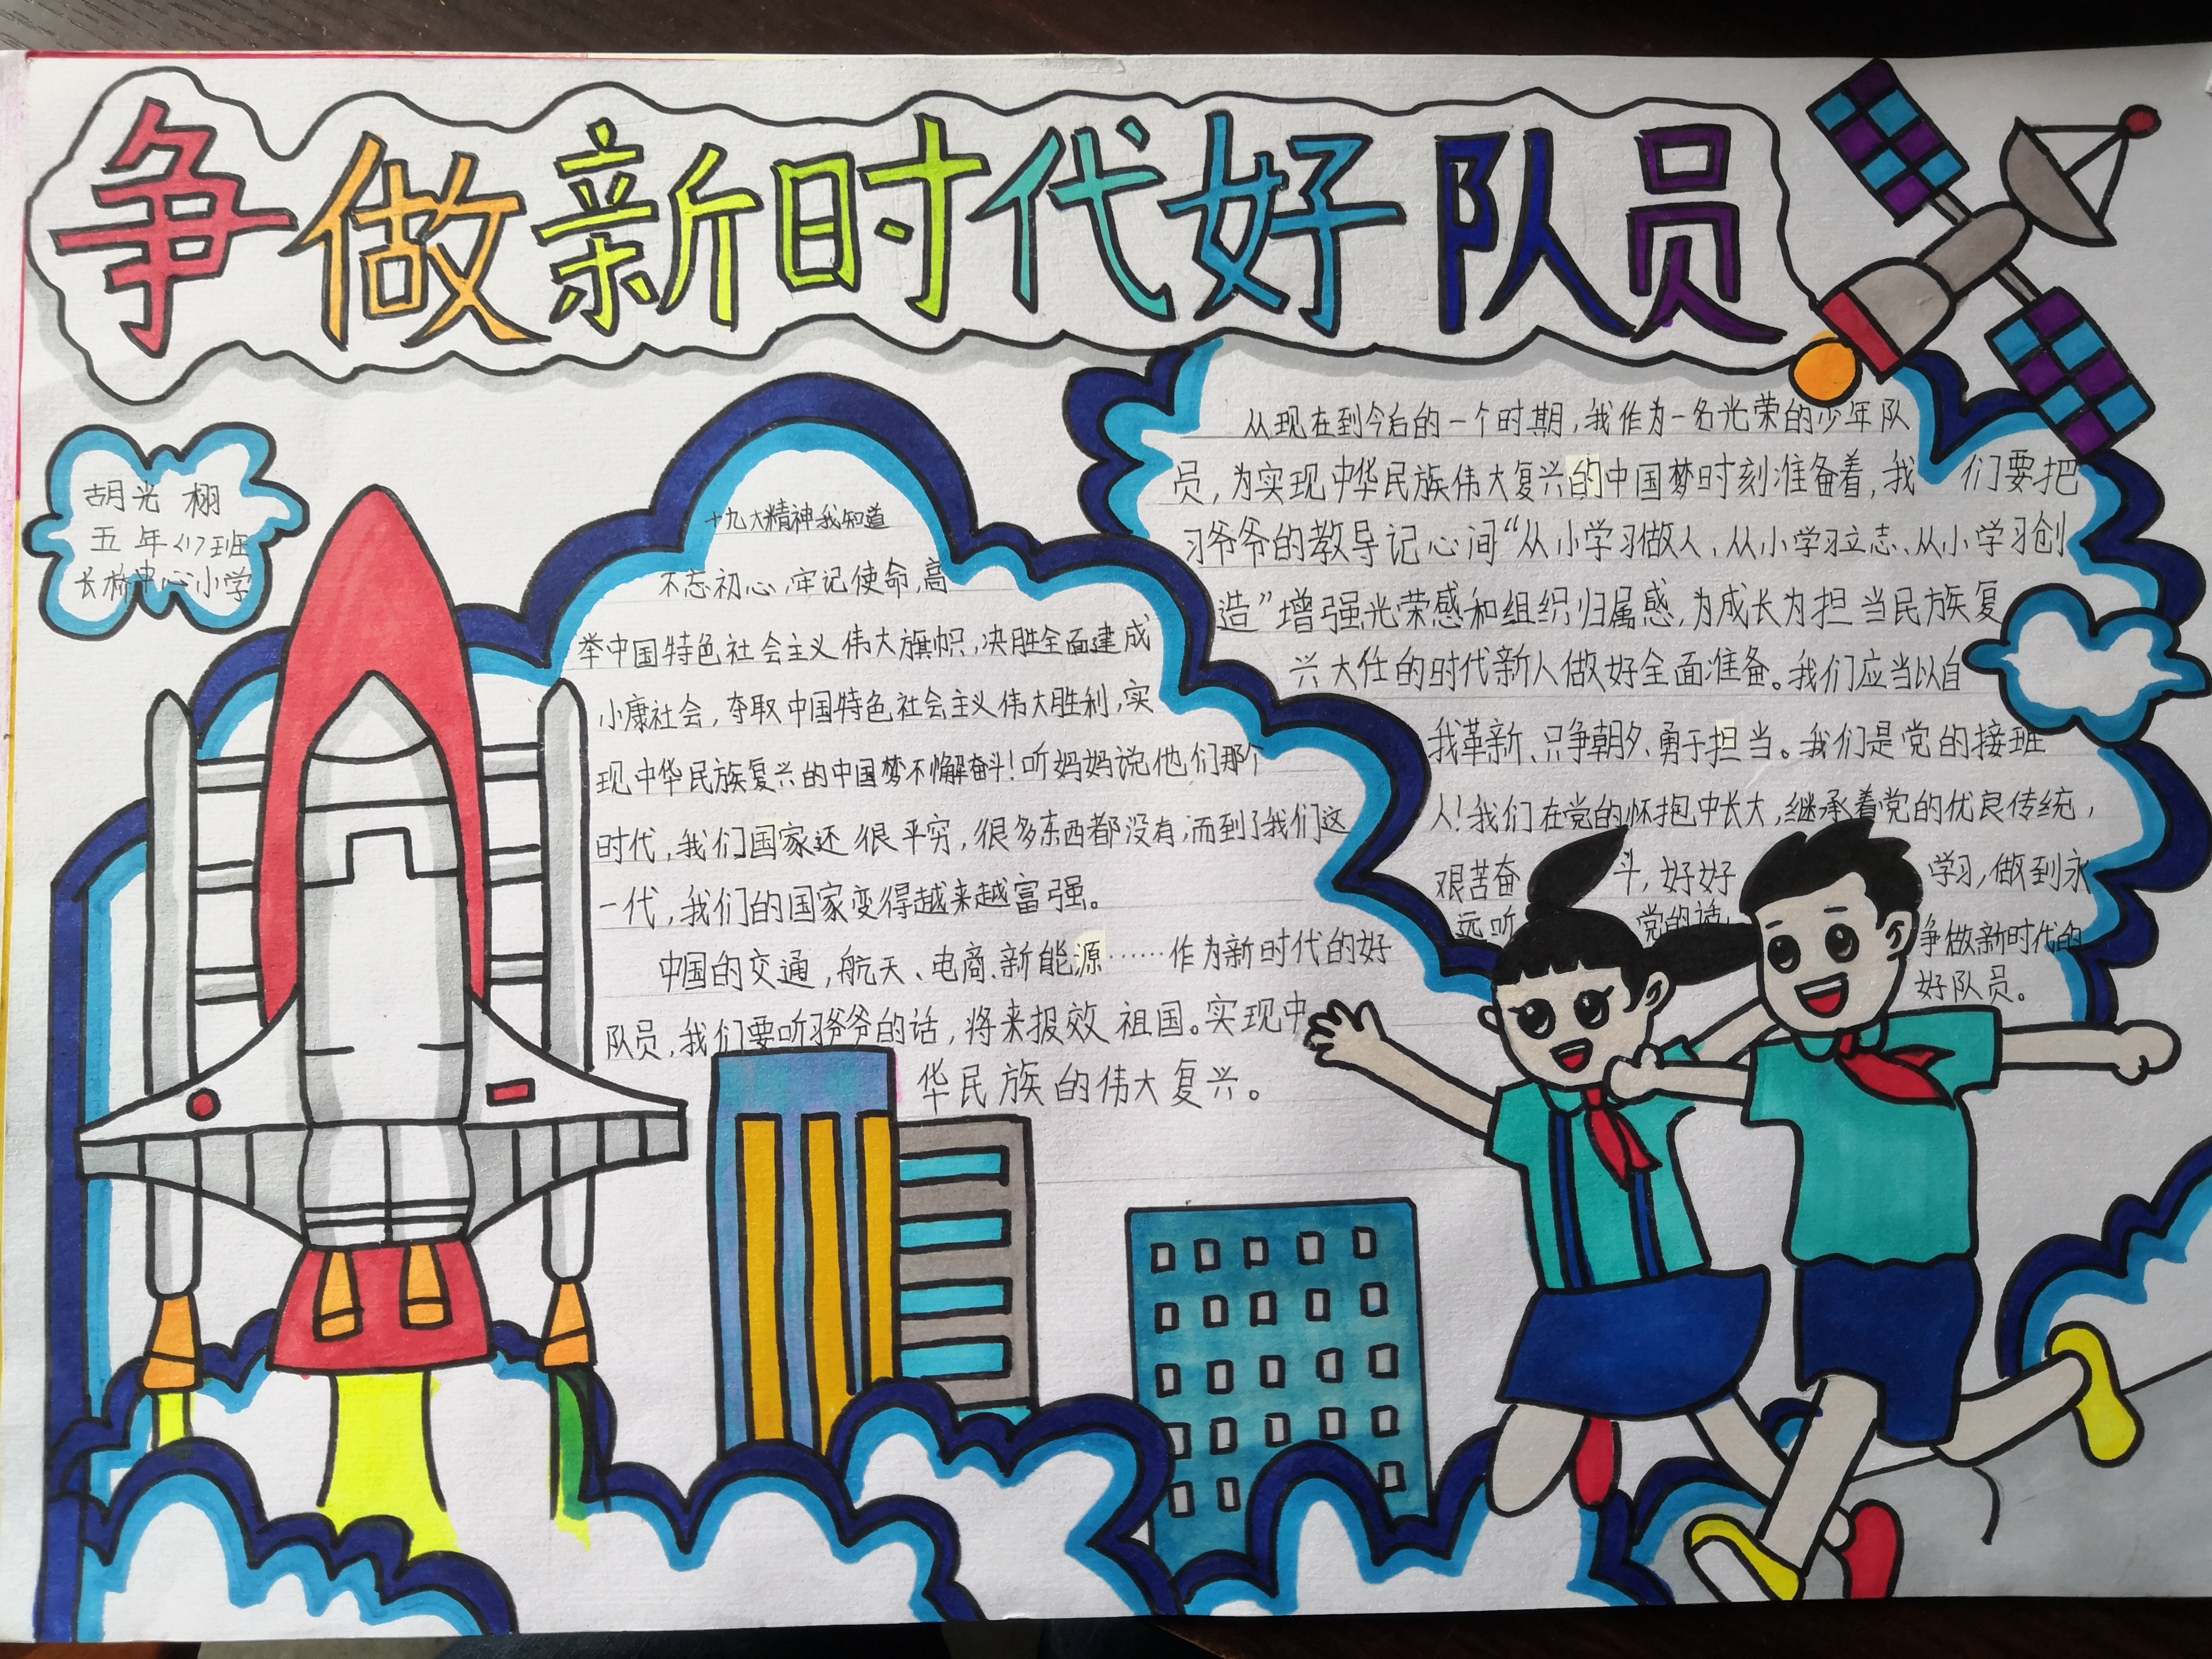 争做新时代好队员
胡光栩
五年<1>班
长桥中心小学
十九大精神我知道
不忘初心,牢记使命,高
举中国特色社会主义伟大旗帜,决胜全面建成
小康社会,夺取中国特色社会主义伟大胜利,实
现中华民族复兴的中国梦不懈奋斗!听妈妈说他们那个
时代,我们国家还很平穷,很多东西都没有,而到了我们这
一代,我们的国家变得越来越富强。
中国的交通,航天、电商、新能源……作为新时代的好
队员,我们要听习爷爷的话,将来报效祖国。实现中
华民族的伟大复兴。
从现在到今后的一个时期,我作为一名光荣的少年队
员,为实现中华民族伟大复兴的中国梦时刻准备着,我们要把
习爷爷的教导记心间“从小学习做人、从小学习立志、从小学习创
造”增强光荣感和组织归属感,为成长为担当民族复
兴大任的时代新人做好全面准备。我们应当以自
我革新、只争朝夕、勇于担当。我们是党的接班
人!我们在党的怀抱中长大,继承着党的优良传统,
艰苦奋斗,好好学习,做到永
远听党的话,争做新时代的
好队员。